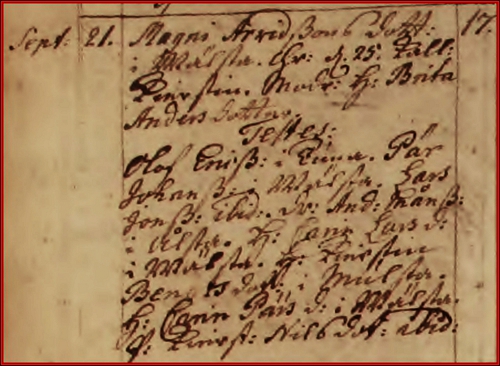 Sept: 21. Magni Arvidssons dott: 17.
i Wålsta. Chr: d. 25. Kall:
Kierstin. Modr: H: Brita
Anders dotter.
Testes:
Olof Ericss: i Tuna. Pär
Johanss: i Wålsta. Lars
Jonss: ibid: Dr: And: Månss:
i Ålsta. H: Cann Lars d:
i Wålsta. H: Kierstin
Bengts dott: i Mulsta.
H: Cann Pärs d: i Wålsta.
P: Kierst: Nils dot: ibid: